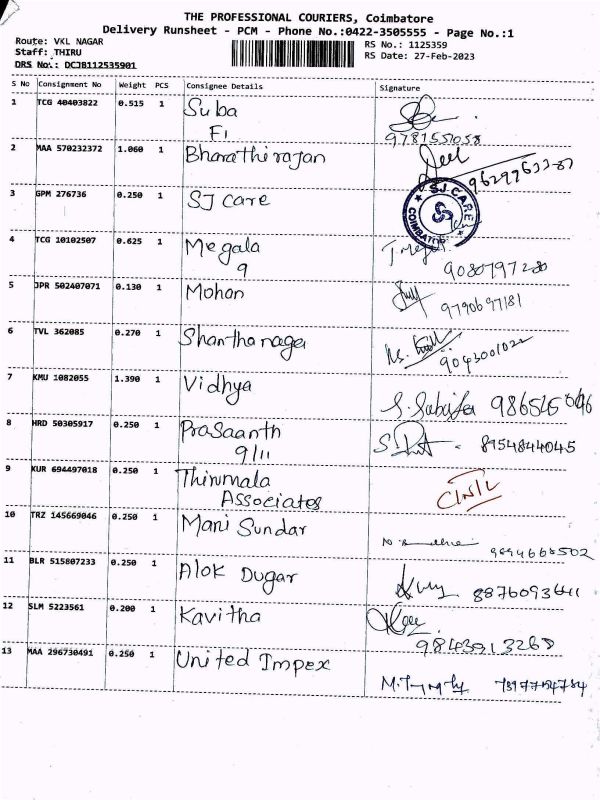 THE PROFESSIONAL COURIERS, Coimbatore
Delivery Runsheet - PCM - Phone No.:0422-3505555 - Page No.:1
Route: VKL NAGAR
RS No.: 1125359
Staff: THIRU
RS Date: 27-Feb-2023
DRS No.: DCJB112535901
S No Consignment No Weight PCS Consignee Details Signature
1 TCG 40403822 0.515 1 Suba
F1
9781551058
2 MAA 570232372 1.060 1 Bharathirajan
3 GPM 276736 0.250 1 SJ Care
S.J. CARE
COIMBATORE
4 TCG 10102507 0.625 1 Megala
9
9080797280
5 JPR 502407071 0.130 1 Mohan
9790697181
6 TVL 362085 0.270 1 Shanthanagei
9043001022
7 KMU 1082055 1.390 1 Vidhya
8 HRD 50305917 0.250 1 Prasaanth
9/11
8954844045
9 KUR 694497018 0.250 1 Thirumala
Associates
10 TRZ 145669046 0.250 1 Mani Sundar
9894668502
11 BLR 515807233 0.250 1 Alok Dugar
12 SLM 5223561 0.200 1 Kavitha
9843913268
13 MAA 296730491 0.250 1 United Impex